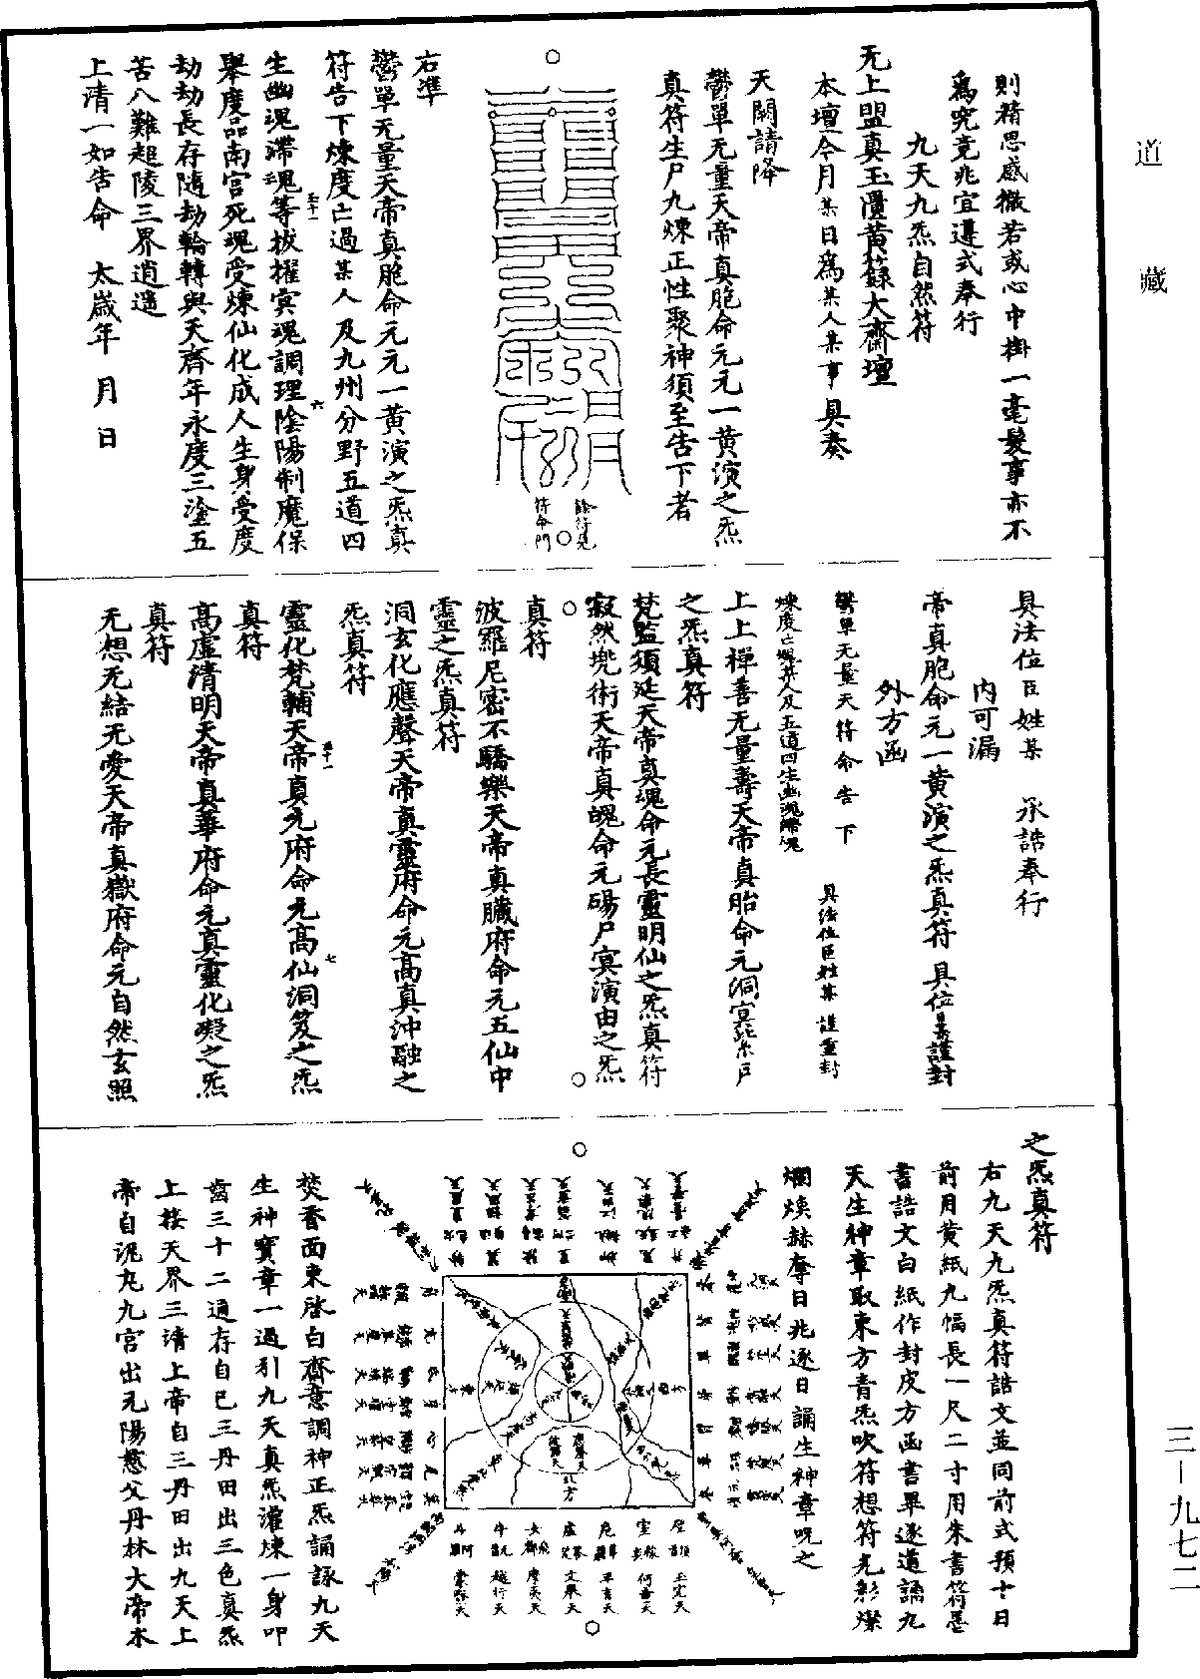 道藏
三—九七二
則精思感徹若或心中掛一毫髮事亦不
爲究竟兆宜遵式奉行
九天九炁自然符
无上盟真玉匱黃籙大齋壇
本壇今月某日爲某人某事 具奏
天闕請降
鬱單无量天帝真胞命元元一黃演之炁
真符生尸九煉正性聚神須至告下者
餘符見
符命門
右準
鬱單无量天帝真胞命元元一黃演之炁真
符告下煉度亡過某人及九州分野五道四
生幽魂滯魂等拔擢冥魂調理陰陽制魔保
舉度品南宮死魂受煉仙化成人生身受度
劫劫長存隨劫輪轉與天齊年永度三塗五
苦八難超陵三界逍遥
上清一如告命 太歲年 月 日
具法位臣姓某 承誥奉行
内可漏
帝真胞命元一黃演之炁真符 具位臣某謹封
外方函
鬱單无量天符命告下
具法位臣姓某 謹重封
煉度亡過某人及五道四生幽魂滯魂
上上禪善无量壽天帝真胎命元洞冥紫戶
之炁真符
梵監須延天帝真魂命元長靈明仙之炁真符
寂然兜術天帝真魄命元碭尸冥演由之炁
真符
波羅尼密不驕樂天帝真臟府命元五仙中
靈之炁真符
洞玄化應聲天帝真靈府命元高真沖融之
炁真符
靈化梵輔天帝真元府命元高仙洞笈之炁
真符
高虛清明天帝真華府命元真靈化凝之炁
真符
无想无結无愛天帝真獄府命元自然玄照
之炁真符
右九天九炁真符誥文並同前式預十日
前用黃紙九幅長一尺二寸用朱書符墨
書誥文白紙作封皮方函書畢逐道誦九
天生神章取東方青炁吹符想符光彩燦
爛煥赫奪日兆逐日誦生神章呪之
焚香面東啓白齋意調神正炁誦詠九天
生神寶章一過引九天真炁灌煉一身叩
齒三十二通存自己三丹田出三色真炁
上接天界三清上帝自三丹田出九天上
帝自泥丸九宮出元陽慈父丹林大帝木